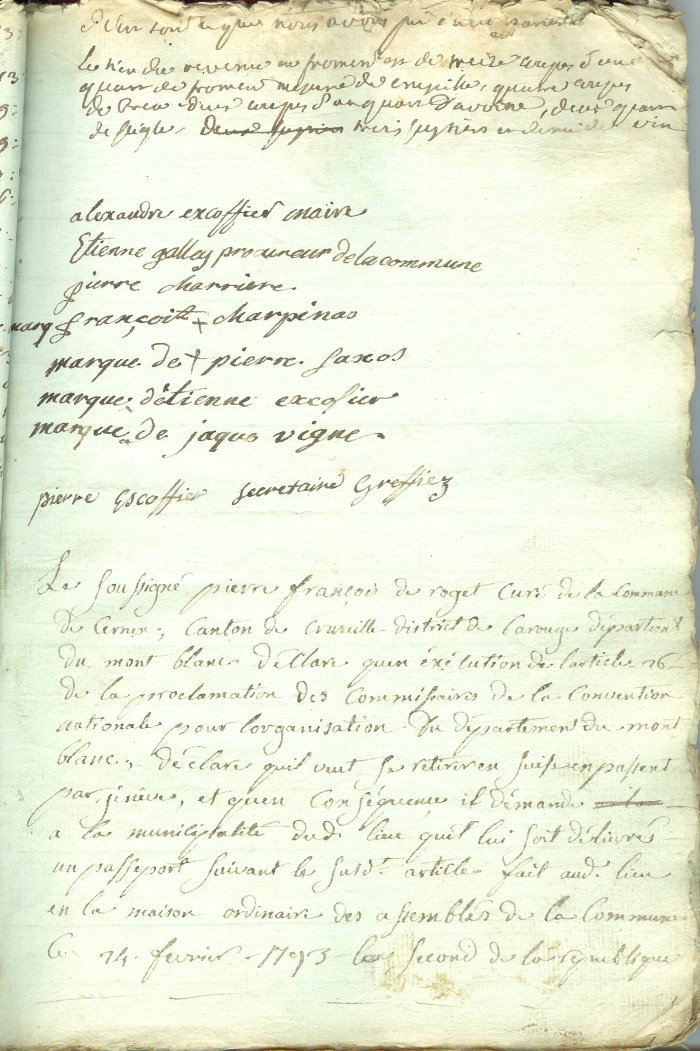 sont que nous avons
le tier du revenu en froment est de treize coupes d'une
quart de froment mesure de cruseille, quatre coupes
de deux coupes d'un quart d'avoine, deux quart
de seigle, trois septiers et demi de vin
alexandre excoffier maire
Etienne galley procureur delacommune
pierre charriere
marq françois + charpinas
marque de + pierre saxos
marque d'étienne excofier
marque de jaque vigne
pierre Escoffier secretaire Greffier
Le soussigné pierre françois de roget curé de la commune
de Cernex, canton de Cruseille district de Carouge département
du mont blanc déclare quen éxécution de larticle 16
de la proclamation des Commissaires de la Convention
nationale pour lorganisation du département du mont
blanc, déclare quil veut se retirer en suise en passent
par jéneve, et quen Conséquence il démande
a la municipalité dud. lieu quil lui soit délivré
un passeport suivant le susd. article fait aud. lieu
en la maison ordinaire des assemblés de la Commune
le 24 fevrier 1793 lan second de la république